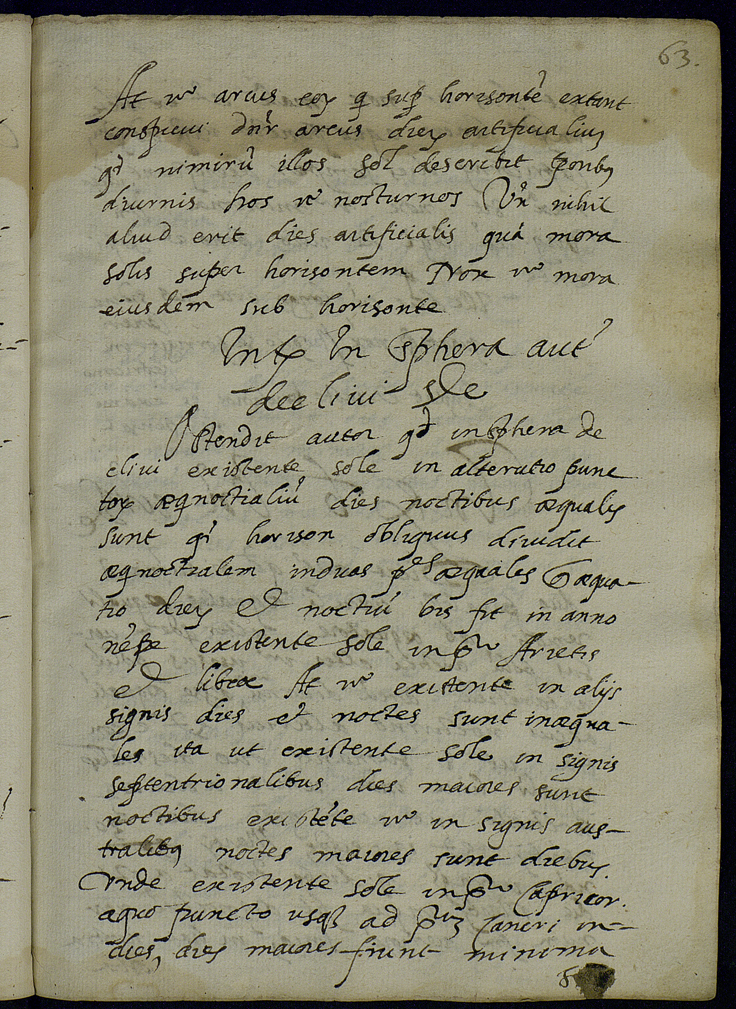 63.
At vo arcus eoꝝ qi sup horisontē extant
conspicui dnr̄ arcus dieꝝ artificialiuʒ
qꝛ nimirū illos sol describit
diurnis hos vo nocturnos Vn̄ nihil
aliud erit dies artificialis quā mora
solis super horisontem Nox vo mora
eiusdem sub horisonte
In Sphera aut
declivi
Ostendit autor qd in Sphera de
clivi existente sole in alterutro punc
toꝝ æqnoctialiū dies noctibus æquales
sunt qꝛ horison obliquus dividit
æqnoctialem induas ptes æquales æqua-
tio dieꝝ et noctiū bis fit in anno
nēpe existente sole in pro Arietis
et libræ At vo existente in alijs
signis dies et noctes sunt inæqua-
les ita ut existente sole in signis
septentrionalibus dies maiores sunt
noctibus existēte vo in signis aus-
tralibꝰ noctes maiores sunt diebus.
Vnde existente sole in pro Capricor.
puncto usqʒ ad pm Cancri in-
dies, dies maiores fiunt minima